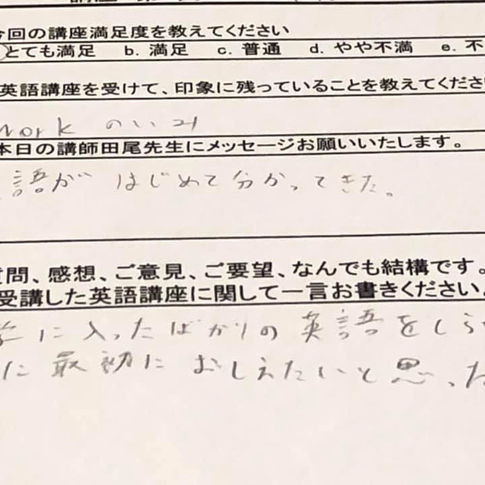 今回の講座満足度を教えてください
とても満足 b. 満足 c. 普通 d. やや不満 e. 不
英語講座を受けて、印象に残っていることを教えてくださ
work のいみ
本日の講師田尾先生にメッセージお願いいたします。
語が はじめて分かってきた。
質問、感想、ご意見、ご要望、なんでも結構です。
受講した英語講座に関して一言お書きください。
に入ったばかりの英語をしら
に最初におしえたいと思った